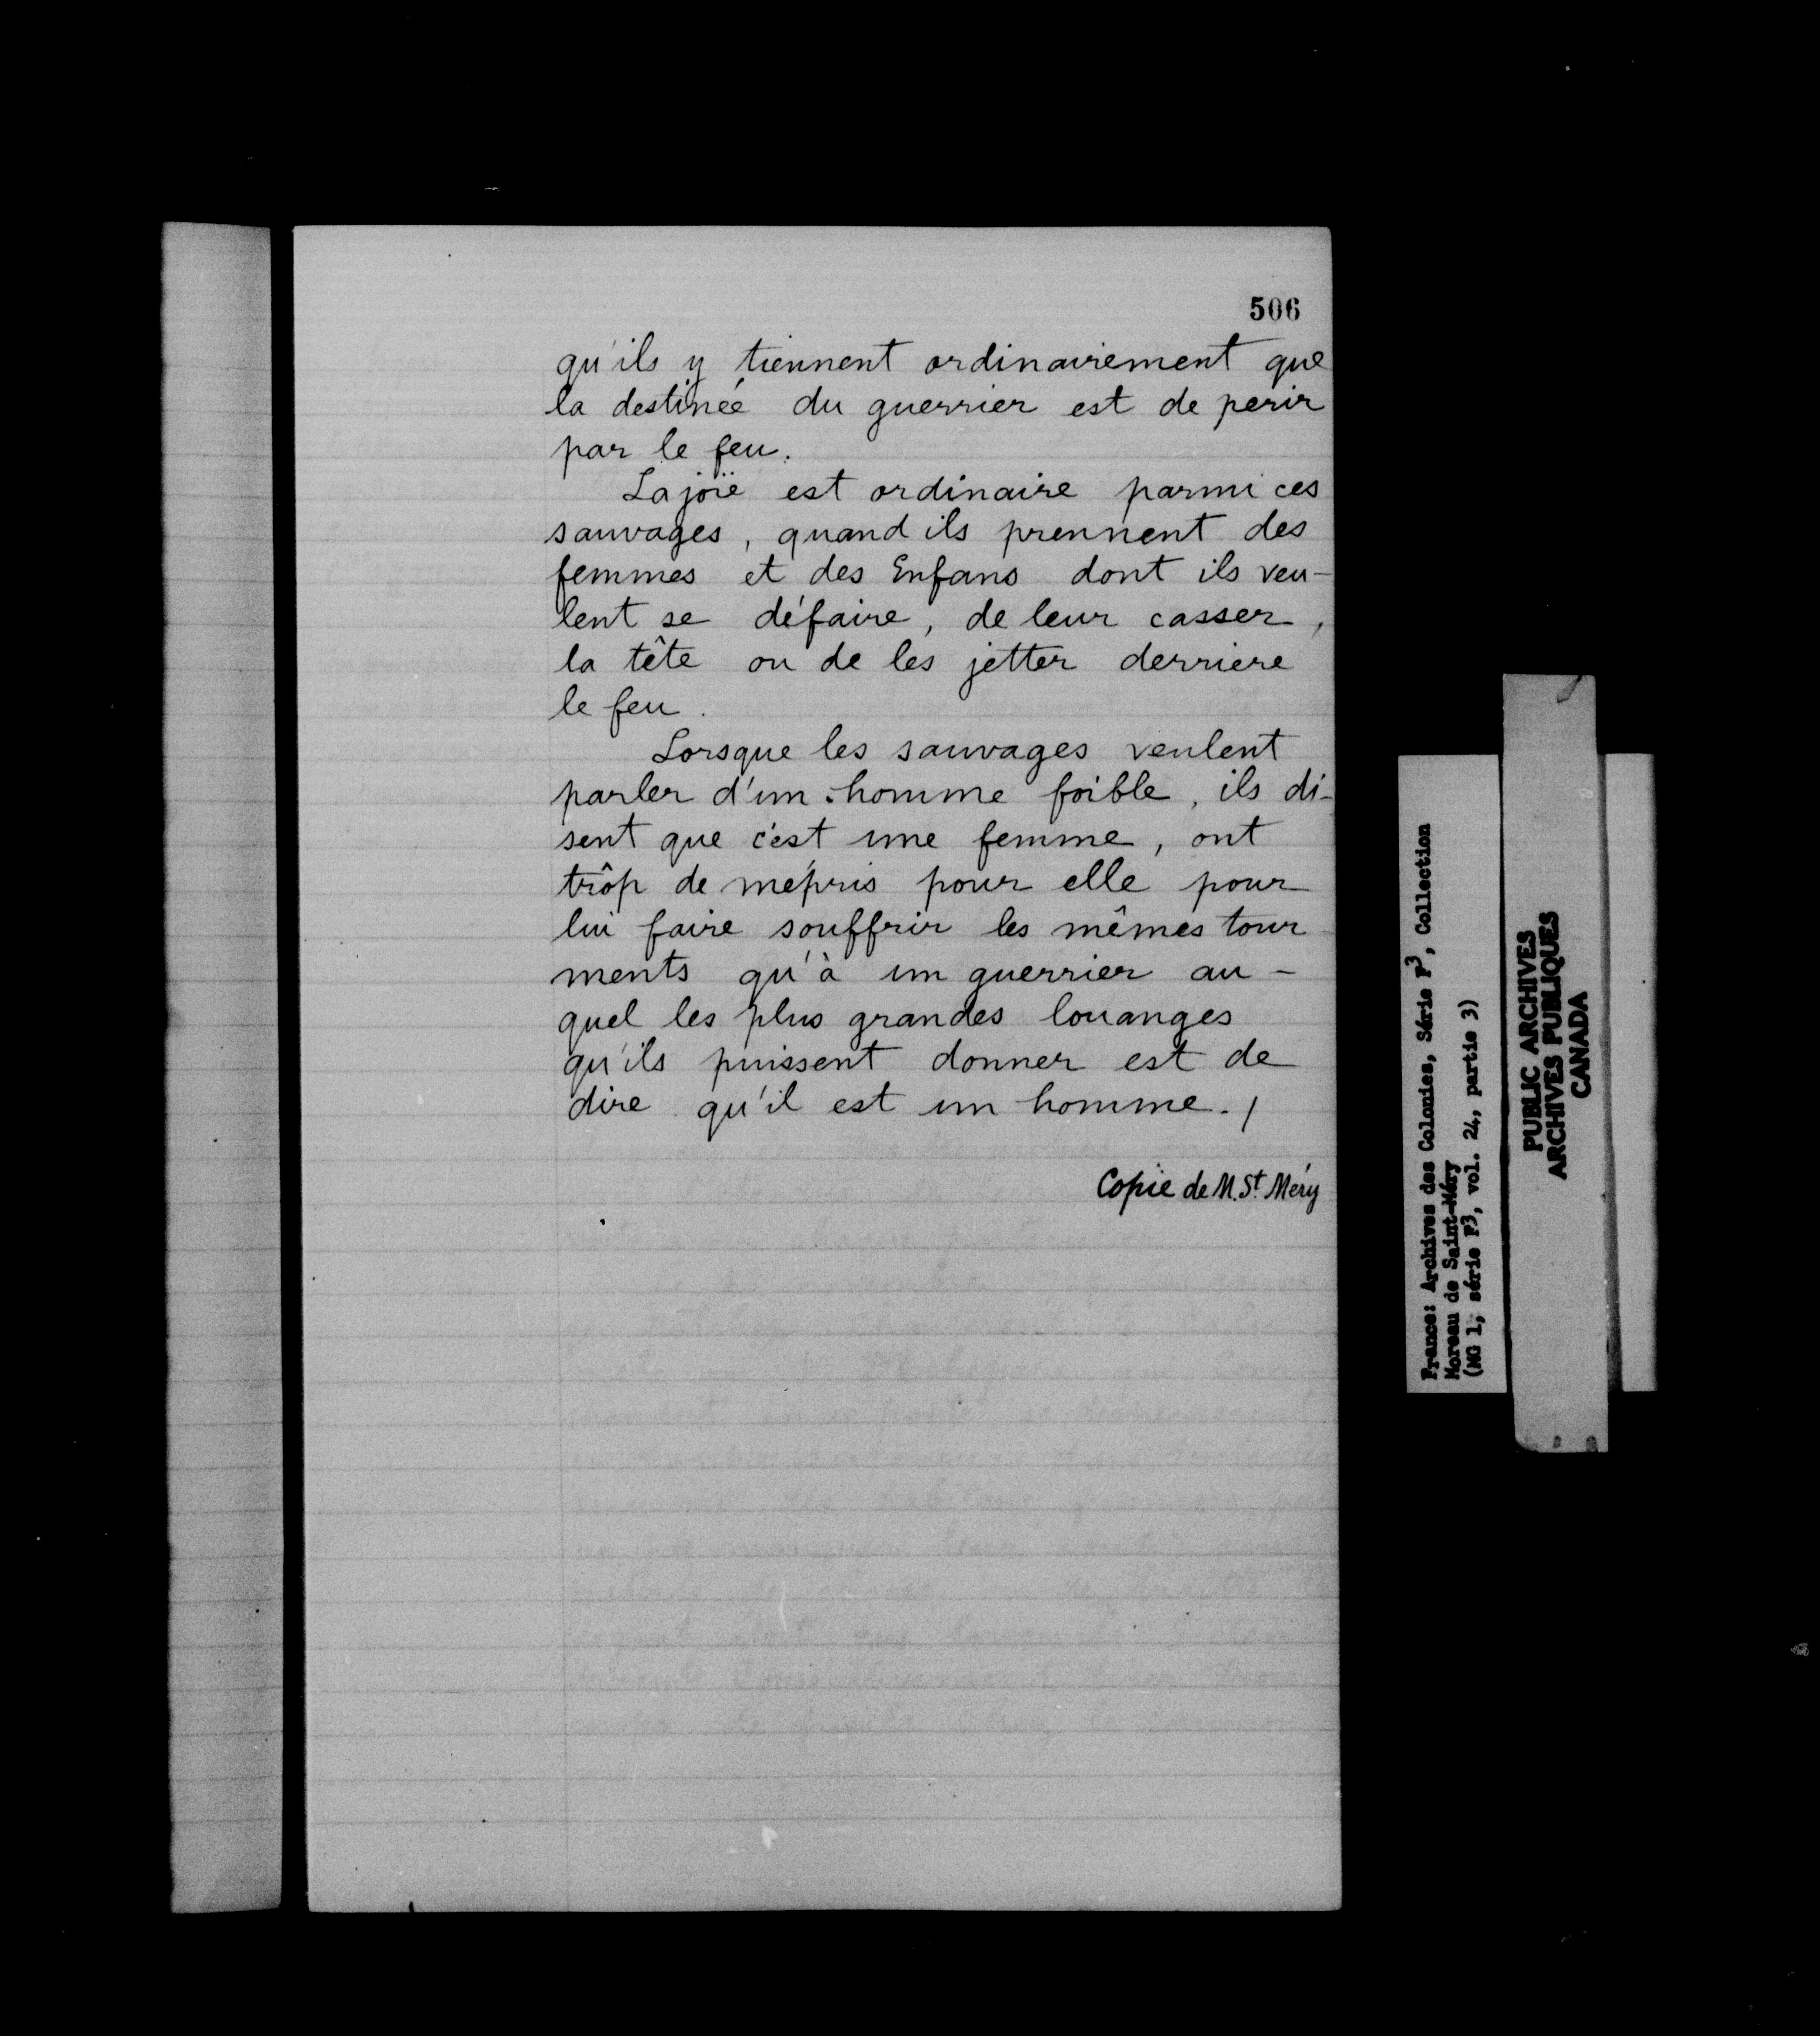 506
qu'ils y tiennent ordinairement que
la destinée du guerrier est de perir
par le feu.
La joïe est ordinaire parmi ces
sauvages, quand ils prennent des
femmes et des Enfans dont ils veu-
lent se défaire, de leur casser,
la tête ou de les jetter derriere
le feu.
Lorsque les sauvages veulent
parler d'un homme foible, ils di-
sent que c'est une femme, ont
trôp de mépris pour elle pour
lui faire souffrir les mêmes tour
ments qu'à un guerrier au-
quel les plus grandes louanges
qu'ils puissent donner est de
dire qu'il est un homme./
Copïe de M. St. Méry
France: Archives des Colonies, Série F3, Collection
Moreau de Saint-Méry
(MG 1, série F3, vol. 24, partie 3)
PUBLIC ARCHIVES
ARCHIVES PUBLIQUES
CANADA